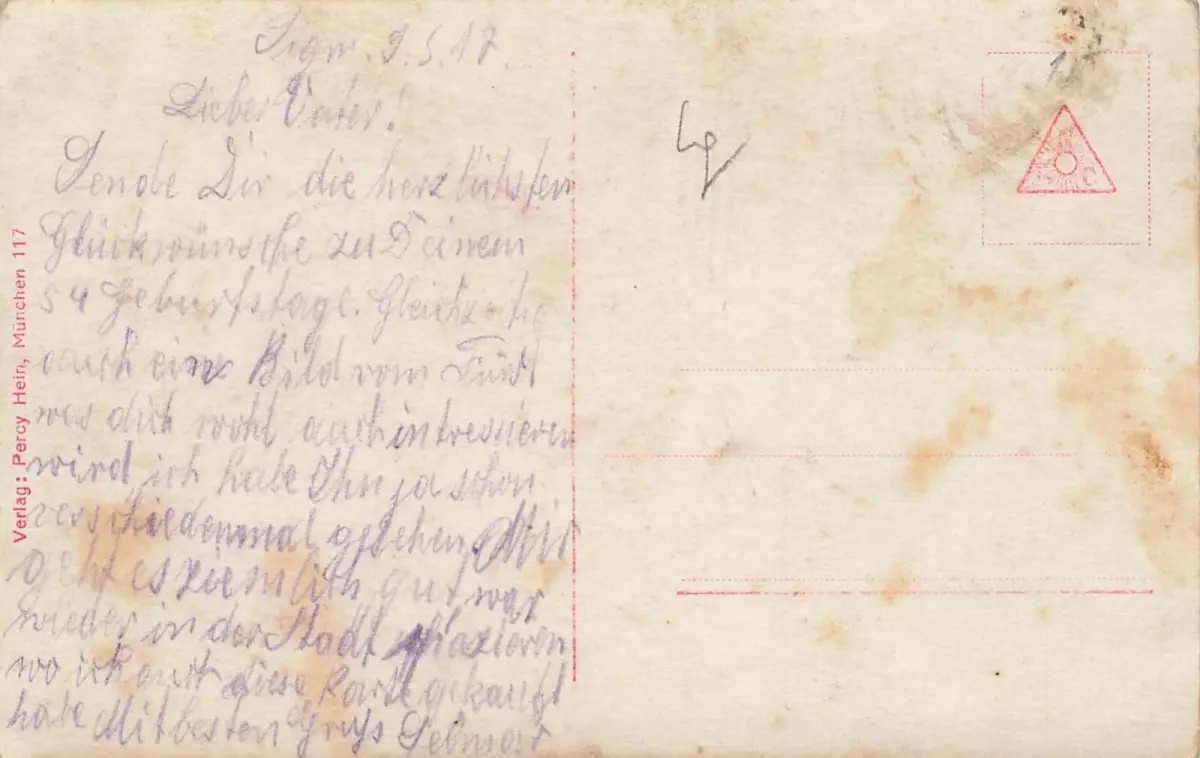 Sigm. 9.5.17.
Lieber Vater!
Sende Dir die herzlichsten
Glückwünsche zu Deinem
54 Geburtstage. Gleichzeitig
auch ein Bild vom Fürst
was dich wohl auch intressieren
wird ich habe Ihn ja schon
verschiedenmal gesehen. Mir
geht es ziemlich gut war
wieder in der Stadt spazieren
wo ich auch diese Karte gekauft
habe Mit besten Gruß
Verlag: Percy Hein, München 117
C